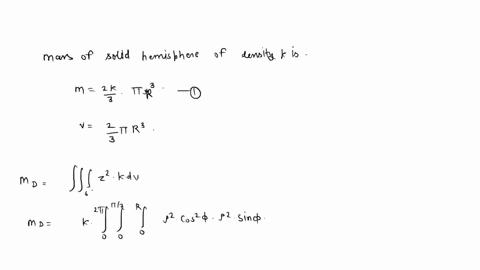 mass of solid hemisphere of density k is.
m = 2k/3 . π R³. —①
v = 2/3 π R³.
M_D = ∭_G z² . k dv
M_D = k . ∫_0^{2π} ∫_0^{π/2} ∫_0^R ρ² cos²φ . ρ² sinφ.